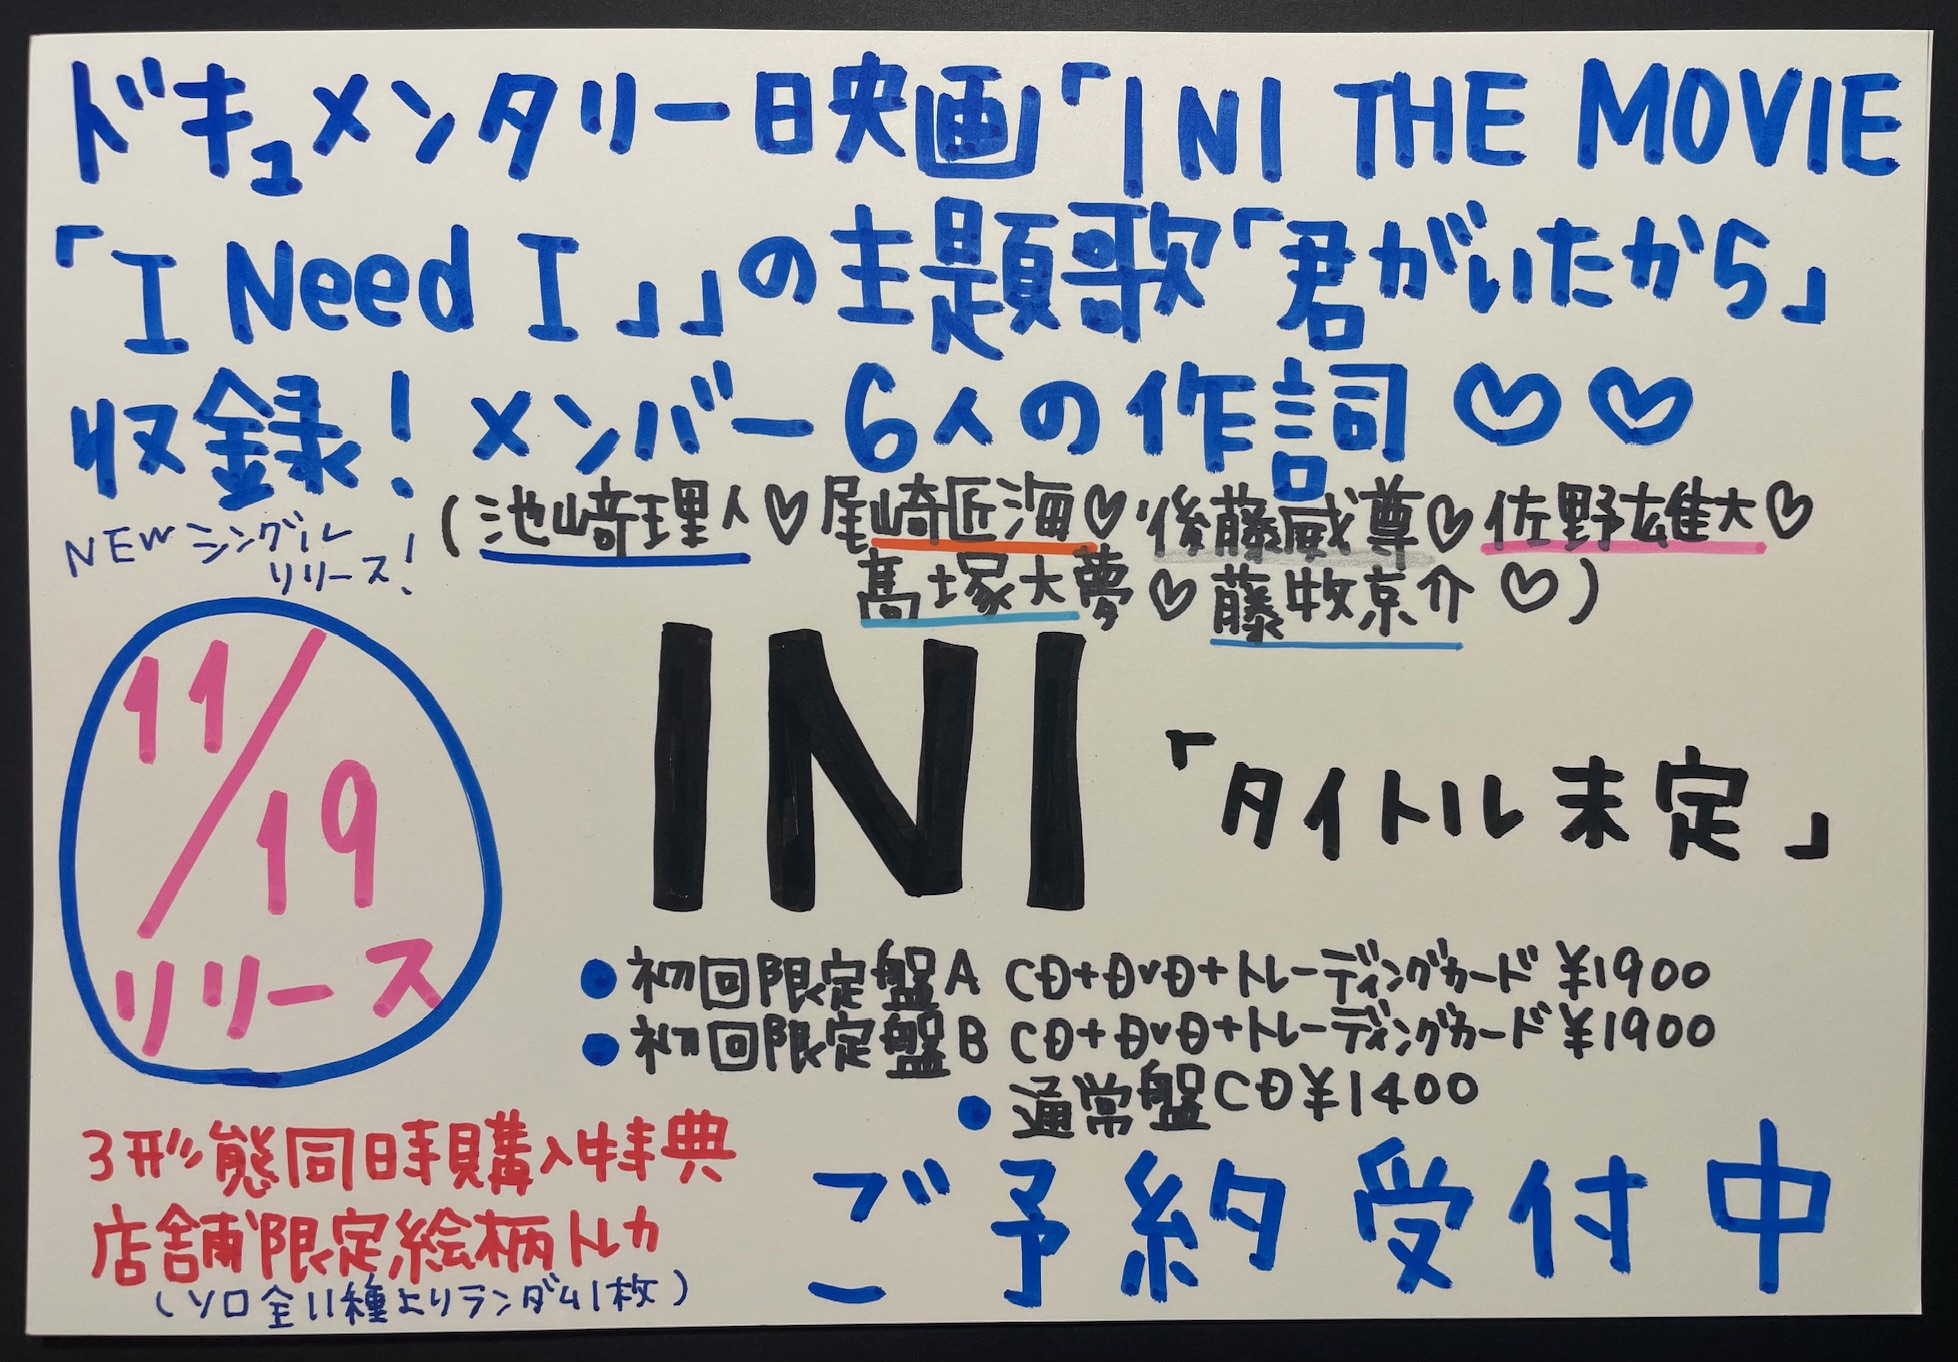 ドキュメンタリー映画「INI THE MOVIE
「I Need I」」の主題歌「君がいたから」
収録！メンバー6人の作詞♡♡
(池﨑理人♡尾崎匠海♡後藤威尊♡佐野雄大♡
髙塚大夢♡藤牧京介♡)
NEWシングル
リリース！
11/19
リリース
INI
「タイトル未定」
●初回限定盤A CD+DVD+トレーディングカード ¥1900
●初回限定盤B CD+DVD+トレーディングカード ¥1900
●通常盤CD¥1400
3形態同時購入特典
店舗限定絵柄トレカ
(ソロ全11種よりランダム1枚)
ご予約受付中